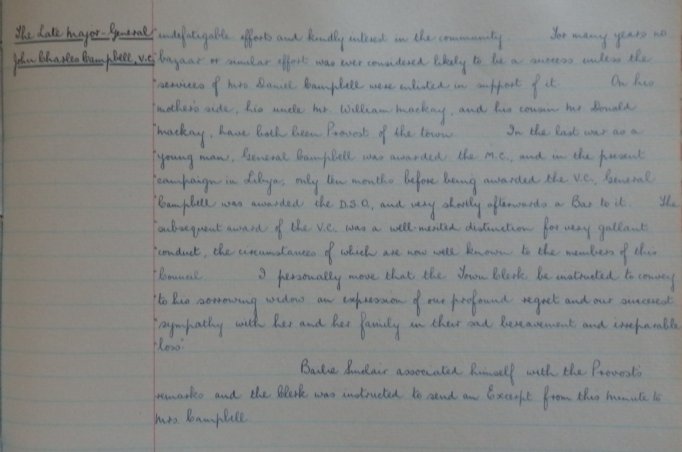 The Late Major-General
John Charles Campbell, V.C.
"indefatigable efforts and kindly interest in the community For many years no
"bazaar or similar effort was ever considered likely to be a success unless the
"services of Mrs. Daniel Campbell were enlisted in support of it On his
"mother's side, his uncle Mr. William Mackay, and his cousin Mr Donald
"Mackay, have both been Provost of the town In the last war as a
"young man, General Campbell was awarded the M.C., and in the present
"campaign in Libya, only ten months before being awarded the V.C., General
"Campbell was awarded the D.S.O, and very shortly afterwards a Bar to it. The
"subsequent award of the V.C. was a well-merited distinction for very gallant
"conduct, the circumstances of which are now well known to the members of this
"Council I personally move that the Town Clerk be instructed to convey
"to his sorrowing widow an expression of our profound regret and our sincerest
"sympathy with her and her family in their sad bereavement and irreparable
"loss"
Bailie Sinclair associated himself with the Provost's
remarks and the Clerk was instructed to send an Excerpt from this Minute to
Mrs Campbell